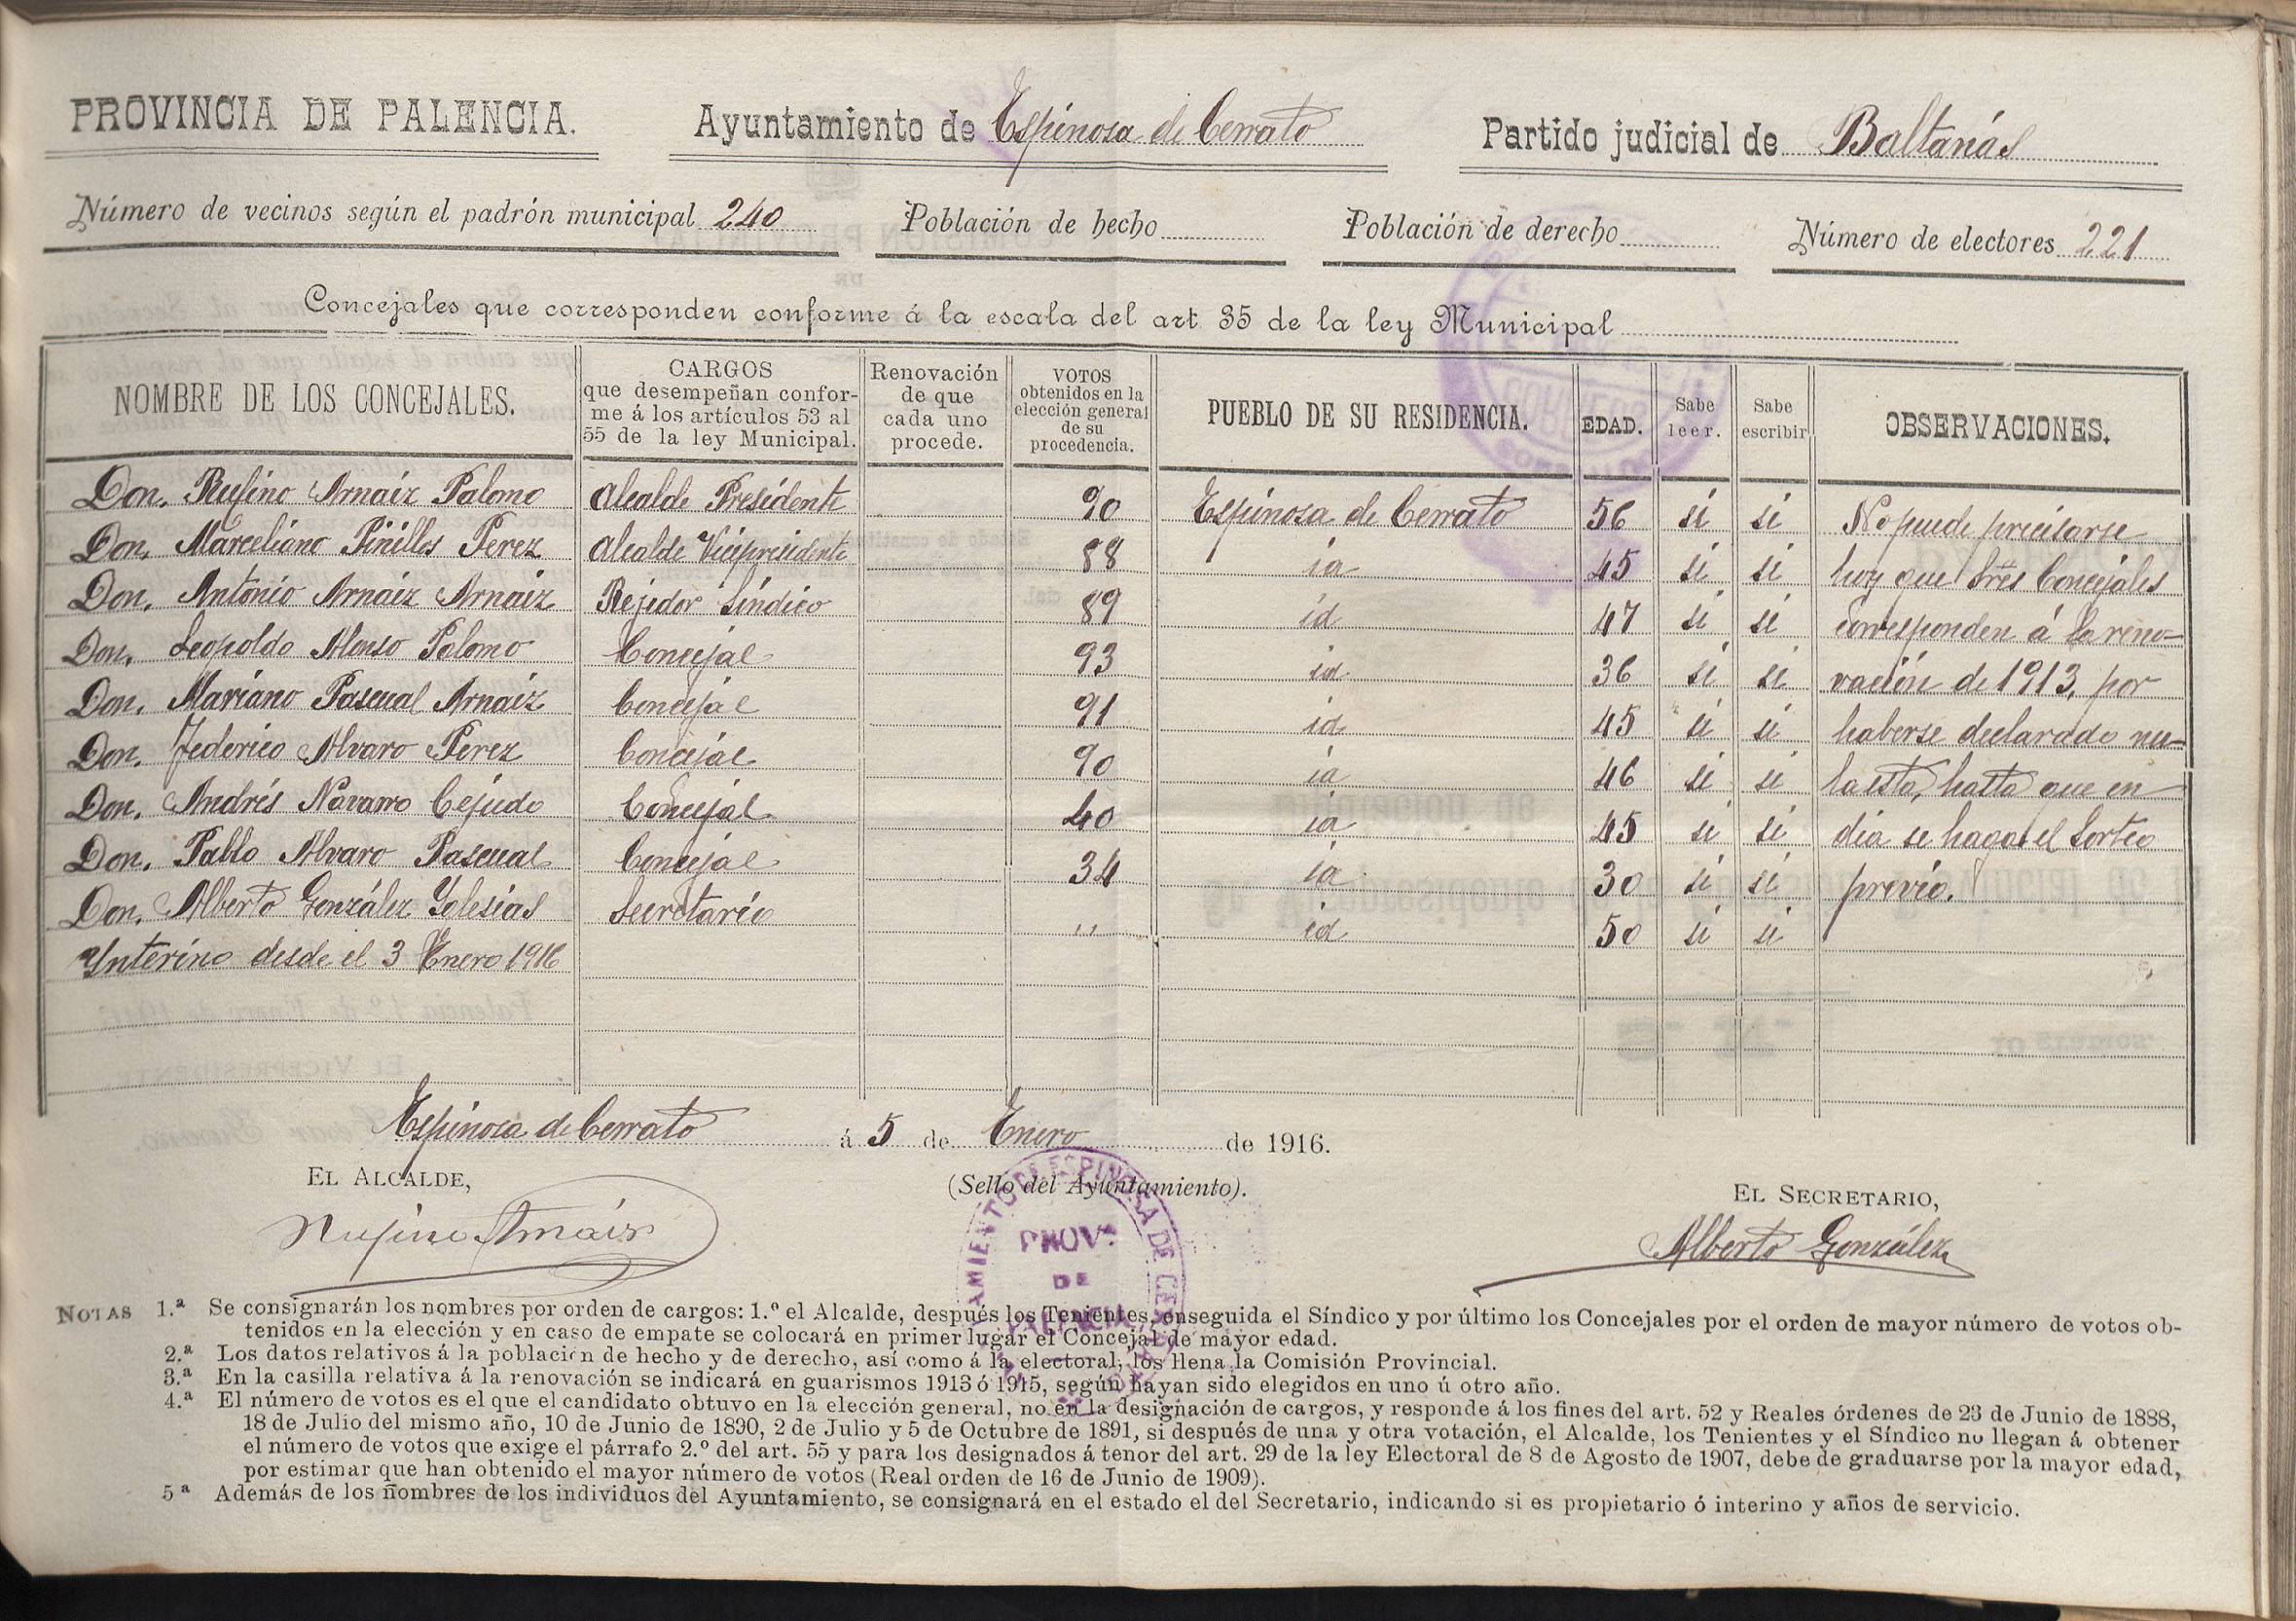 PROVINCIA DE PALENCIA. Ayuntamiento de Espinosa de Cerrato Partido judicial de Baltanás
Número de vecinos según el padrón municipal 240 Población de hecho Población de derecho Número de electores 221
Concejales que corresponden conforme á la escala del art. 35 de la ley Municipal
NOMBRE DE LOS CONCEJALES. CARGOS que desempeñan confor- me á los artículos 53 al 55 de la ley Municipal. Renovación de que cada uno procede. VOTOS obtenidos en la elección general de su procedencia. PUEBLO DE SU RESIDENCIA. EDAD. Sabe leer. Sabe escribir OBSERVACIONES.
Don. Rufino Arnaiz Palomo Alcalde Presidente 90 Espinosa de Cerrato 56 si si No puede precisarse
Don. Marceliano Pinillos Perez Alcalde Vicepresidente 88 id 45 si si hoy que tres Concejales
Don. Antonio Arnaiz Arnaiz Rejidor Síndico 89 id 47 si si corresponden á la reno-
Don. Leopoldo Alonso Palomo Concejal 93 id 36 si si vación de 1913, por
Don. Mariano Pascual Arnaiz Concejal 91 id 45 si si haberse declarado nu-
Don. Federico Alvaro Perez Concejal 90 id 46 si si la esta, hasta que en
Don. Andrés Navarro Cejudo Concejal 40 id 45 si si dia se haga el Sorteo
Don. Pablo Alvaro Pascual Concejal 34 id 30 si si previo.
Don. Alberto González Yglesias Secretario " id 50 si si
Ynterino desde el 3 Enero 1916
Espinosa de Cerrato á 5 de Enero de 1916.
EL ALCALDE, (Sello del Ayuntamiento). EL SECRETARIO,
Rufino Arnaiz Alberto González
AMIENTO DE ESPINOSA DE CERRATO
PROV.ª
DE
PALENCIA
CORREOS
NOTAS 1.ª Se consignarán los nombres por orden de cargos: 1.º el Alcalde, después los Tenientes, enseguida el Síndico y por último los Concejales por el orden de mayor número de votos ob-
tenidos en la elección y en caso de empate se colocará en primer lugar el Concejal de mayor edad.
2.ª Los datos relativos á la población de hecho y de derecho, así como á la electoral, los llena la Comisión Provincial.
3.ª En la casilla relativa á la renovación se indicará en guarismos 1913 ó 1915, según hayan sido elegidos en uno ú otro año.
4.ª El número de votos es el que el candidato obtuvo en la elección general, no en la designación de cargos, y responde á los fines del art. 52 y Reales órdenes de 23 de Junio de 1888,
18 de Julio del mismo año, 10 de Junio de 1890, 2 de Julio y 5 de Octubre de 1891, si después de una y otra votación, el Alcalde, los Tenientes y el Síndico no llegan á obtener
el número de votos que exige el párrafo 2.º del art. 55 y para los designados á tenor del art. 29 de la ley Electoral de 8 de Agosto de 1907, debe de graduarse por la mayor edad,
por estimar que han obtenido el mayor número de votos (Real orden de 16 de Junio de 1909).
5ª Además de los nombres de los individuos del Ayuntamiento, se consignará en el estado el del Secretario, indicando si es propietario ó interino y años de servicio.